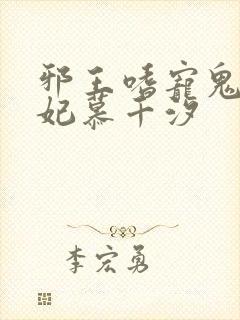 邪王嗜宠鬼
妃慕千汐
李宏勇